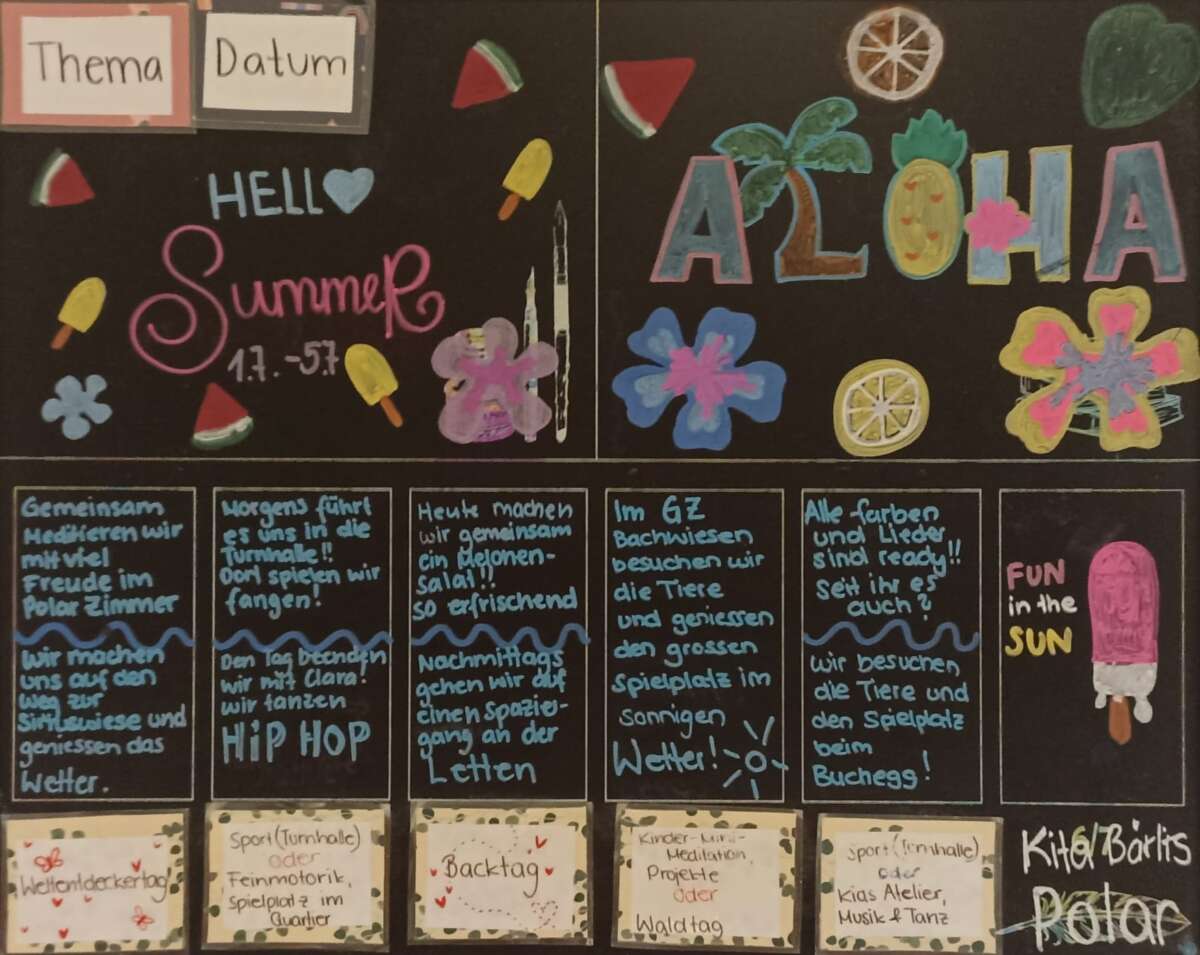 Thema
Datum
HELLO
SummeR
1.7. - 5.7
ALOHA
Gemeinsam
Meditieren wir
mit viel
Freude im
Polar Zimmer
Wir machen
uns auf den
Weg zur
Siriuswiese und
geniessen das
Wetter.
Morgens führt
es uns in die
Turnhalle!!
Dort spielen wir
fangen!
Den Tag beenden
wir mit Clara!
wir tanzen
HiP HOP
Heute machen
wir gemeinsam
ein Melonen-
Salat!!
so erfrischend
Nachmittags
gehen wir auf
einen Spazier-
gang an der
Letten
Im GZ
Bachwiesen
besuchen wir
die Tiere
und geniessen
den grossen
Spielplatz im
sonnigen
Wetter!
Alle farben
und Lieder
sind ready!!
Seit ihr es
auch?
wir besuchen
die Tiere und
den Spielplatz
beim
Buchegg!
FUN
in the
SUN
Weltentdeckertag
Sport (Turnhalle)
oder
Feinmotorik,
Spielplatz im
Quartier
Backtag
Kinder-Mini-
Meditation,
Projekte
oder
Waldtag
Sport (Turnhalle)
oder
Kias Atelier,
Musik & Tanz
Bärlis
Polar